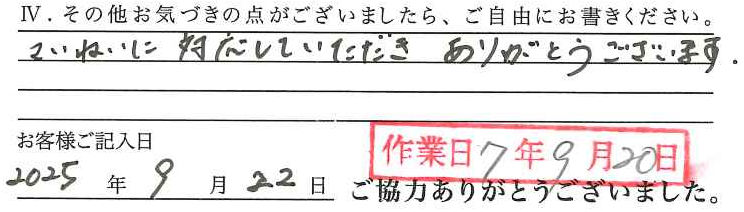 Ⅳ．その他お気づきの点がございましたら、ご自由にお書きください。
ていねいに対応していただきありがとうございます.
お客様ご記入日
作業日7年9月20日
2025年9月22日
ご協力ありがとうございました。